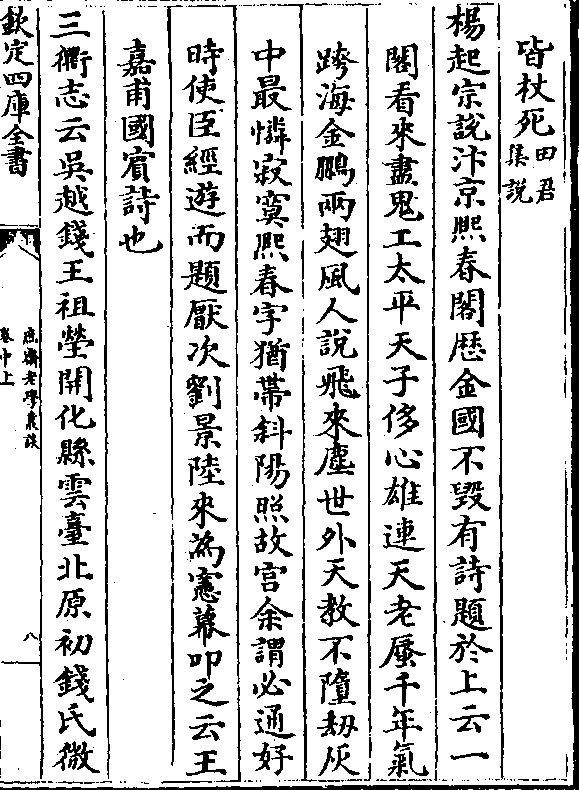 皆杖死田君集説
楊起宗説汴京熈春閣歴金國不毀有詩題於上云一
閣看來盡鬼工太平天子侈心雄連天老蜃千年氣
跨海金鵬兩翅風人說飛來塵世外天教不墮刼灰
中最憐寂寞熈春字猶帶斜陽照故宫余謂必通好
時使臣經遊而題厭次劉景陸來為憲幕叩之云王
嘉甫國賔詩也
三衢志云吳越錢王祖塋開化縣雲臺北原初錢氏微
欽定四庫全書
庶齋老學叢談
卷中上
八